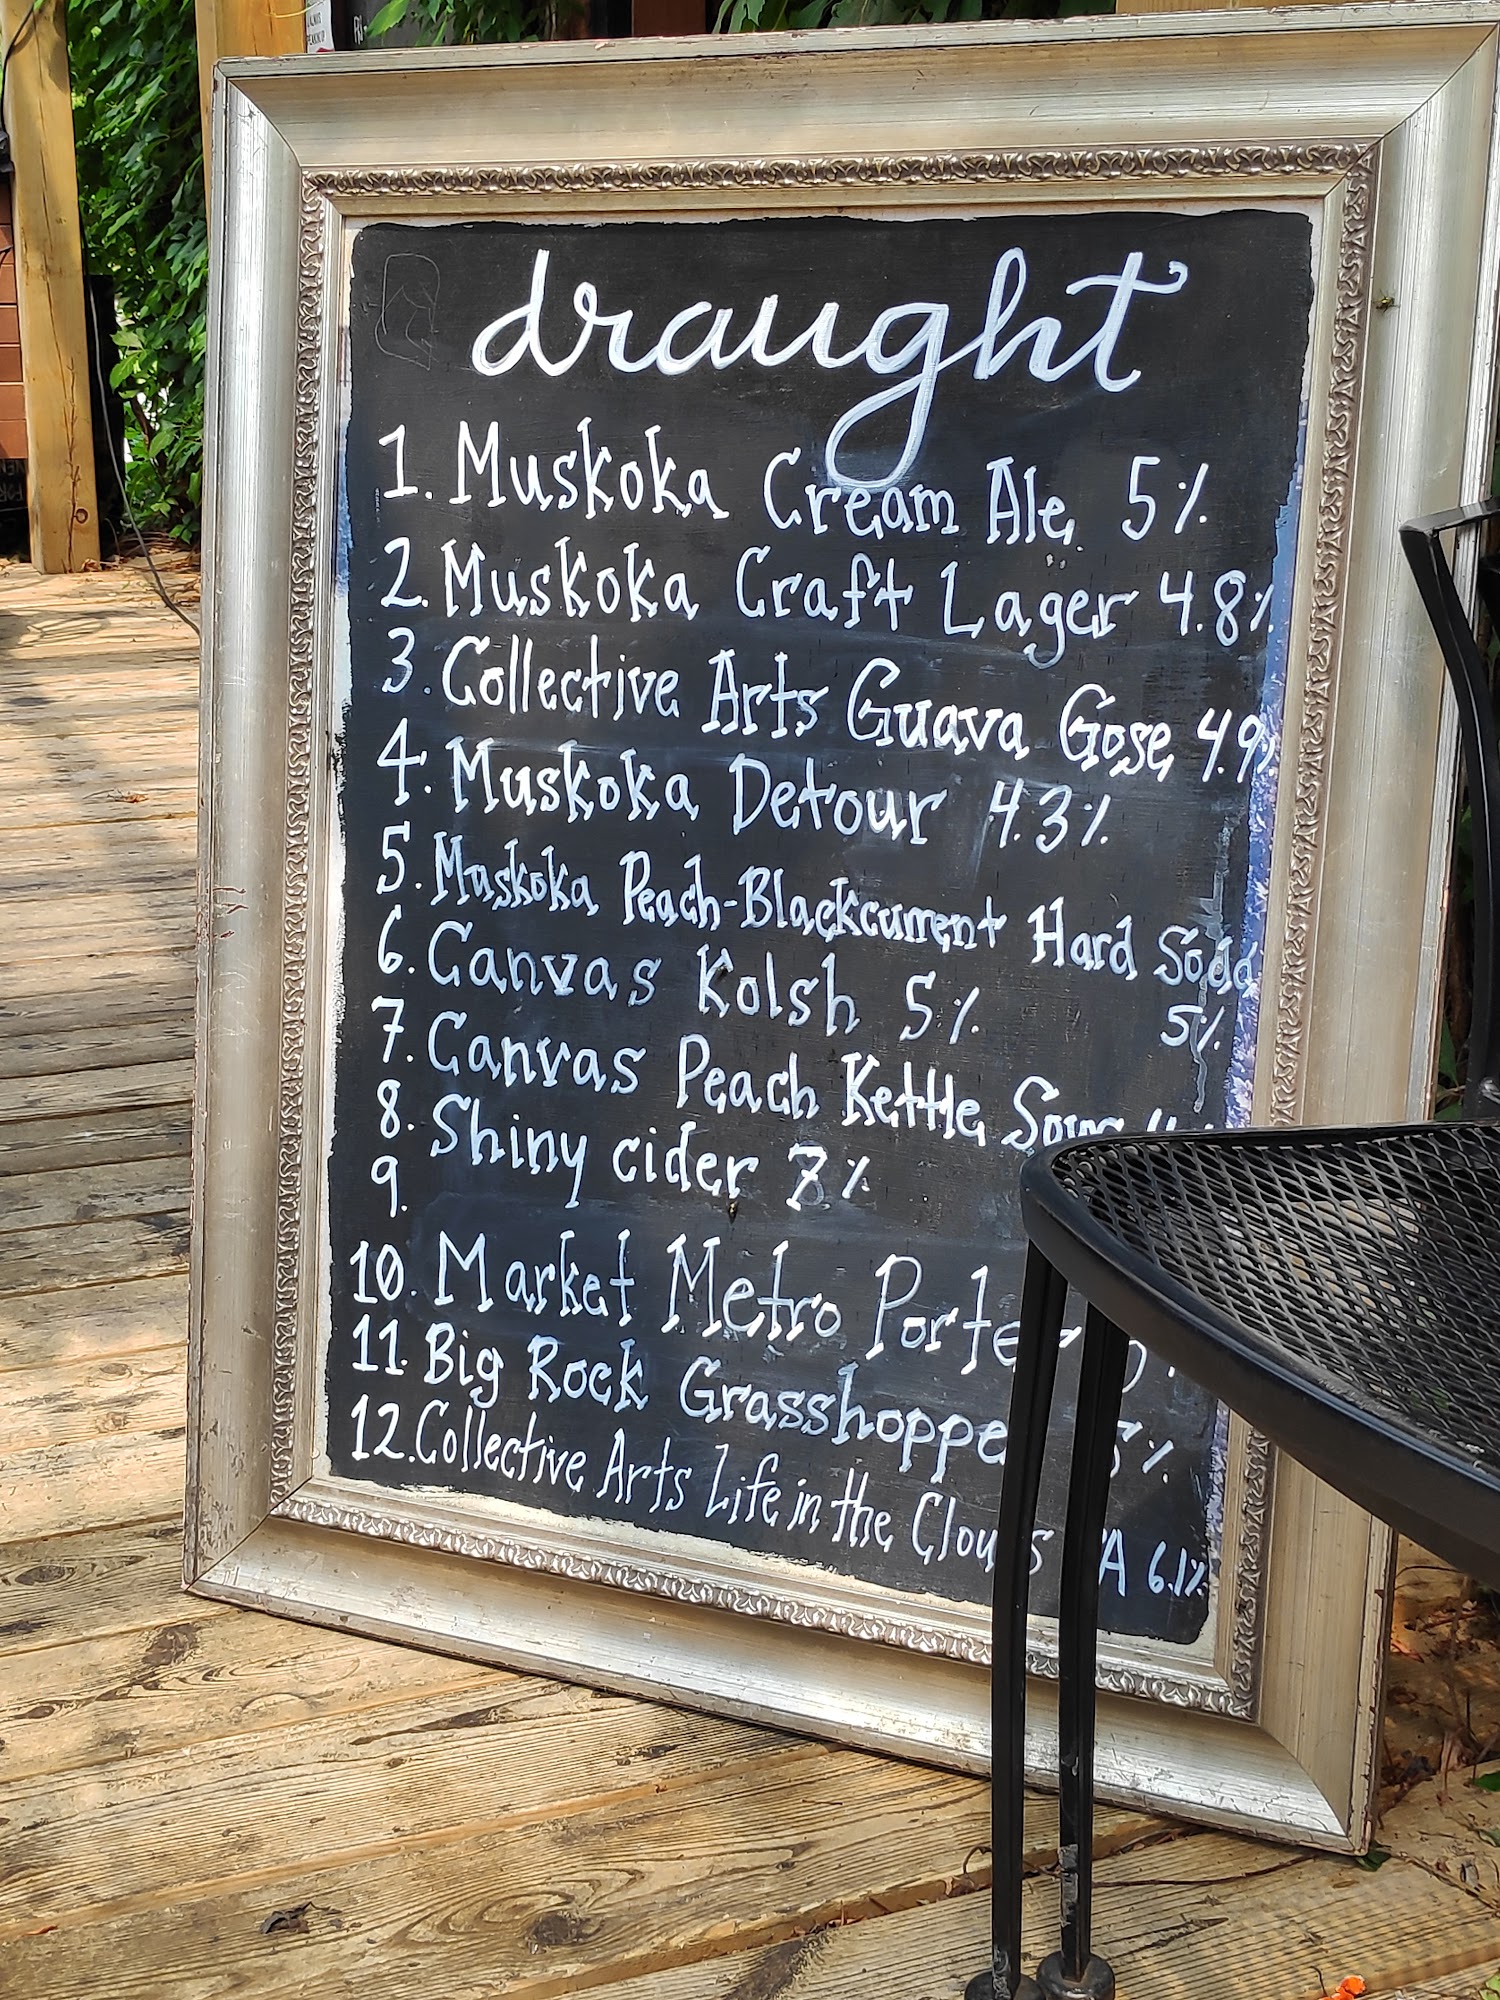 draught
1. Muskoka Cream Ale 5%
2. Muskoka Craft Lager 4.8%
3. Collective Arts Guava Gose 4.9%
4. Muskoka Detour 4.3%
5. Muskoka Peach-Blackcurrent Hard Soda
5%
6. Canvas Kolsh 5%
7. Canvas Peach Kettle Sour
8. Shiny cider 7%
9.
10. Market Metro Porter
11. Big Rock Grasshopper 5%
12. Collective Arts Life in the Clouds 6.1%